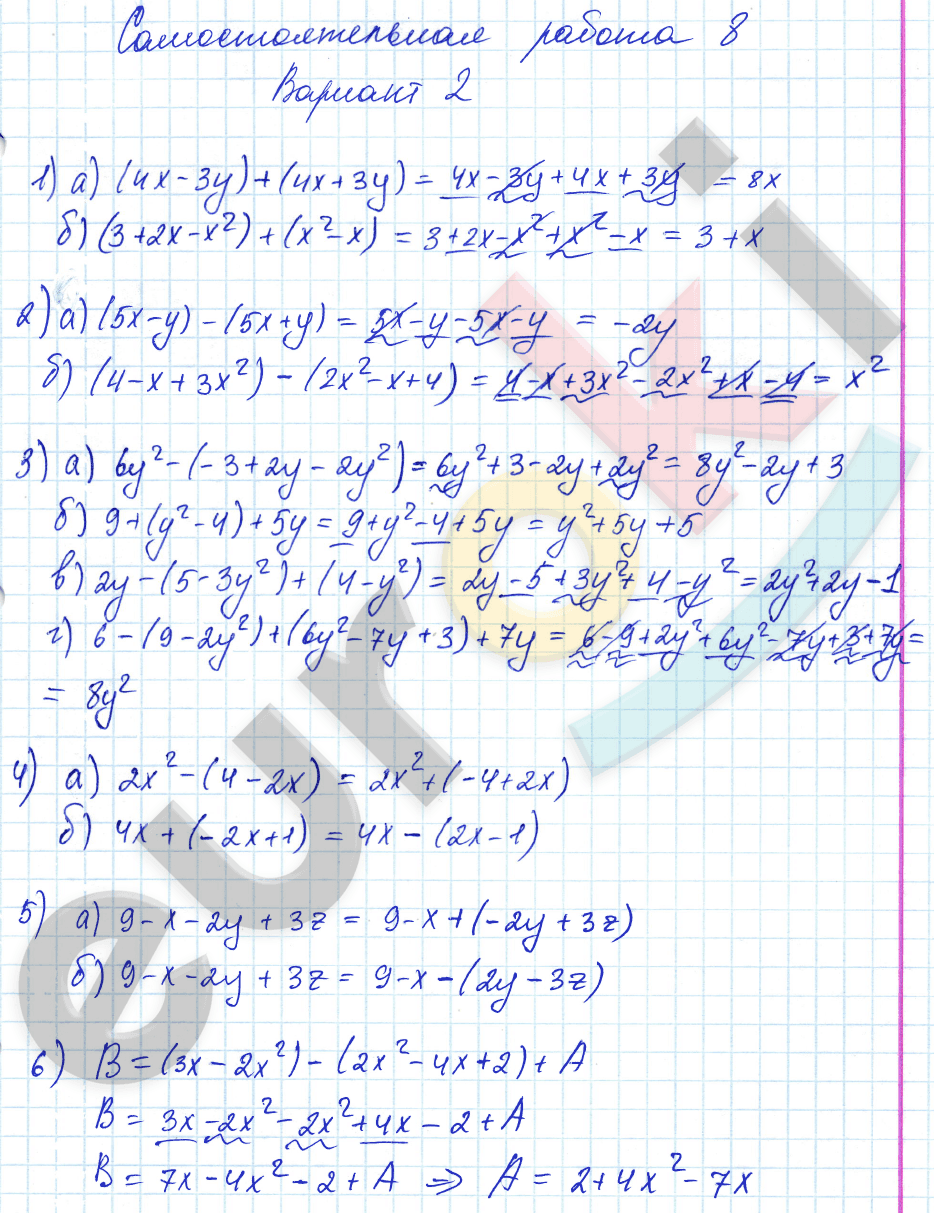 Самостоятельная работа 8
Вариант 2
1) а) (4x-3y)+(4x+3y) = 4x-3y+4x+3y = 8x
б) (3+2x-x²)+(x²-x) = 3+2x-x²+x²-x = 3+x
2) а) (5x-y)-(5x+y) = 5x-y-5x-y = -2y
б) (4-x+3x²)-(2x²-x+4) = 4-x+3x²-2x²+x-4 = x²
3) а) 6y²-(-3+2y-2y²) = 6y²+3-2y+2y² = 8y²-2y+3
б) 9+(y²-4)+5y = 9+y²-4+5y = y²+5y+5
в) 2y-(5-3y²)+(4-y²) = 2y-5+3y²+4-y² = 2y²+2y-1
г) 6-(9-2y²)+(6y²-7y+3)+7y = 6-9+2y²+6y²-7y+3+7y =
= 8y²
4) а) 2x²-(4-2x) = 2x²+(-4+2x)
б) 4x+(-2x+1) = 4x-(2x-1)
5) а) 9-x-2y+3z = 9-x+(-2y+3z)
б) 9-x-2y+3z = 9-x-(2y-3z)
6) B = (3x-2x²)-(2x²-4x+2)+A
B = 3x-2x²-2x²+4x-2+A
B = 7x-4x²-2+A ⇒ A = 2+4x²-7x
euroki